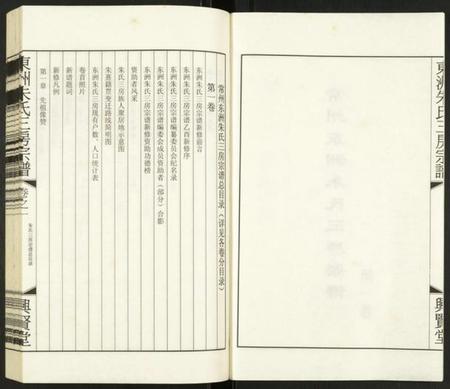 東洲朱氏三房宗譜
興賢堂
常州东洲朱氏三房宗谱总目录（详见各卷分目录）
第一卷
东洲朱氏三房宗谱新修前言
东洲朱氏三房宗谱乙酉新修序
东洲朱氏三房宗谱编纂委员会纪名录
东洲朱氏三房宗谱编委会成员资助者（部分）合影
东洲朱氏三房宗谱新修资助功德榜
资助者风采
朱氏三房族人聚居地示意图
朱熹籍贯变迁路线简明图
东洲朱氏三房现有户数、人口统计表
卷首照片
新谱题词
新修凡例
第一章 先祖像赞
東洲朱氏三房宗譜
卷之一
朱氏三房宗谱总目录
興賢堂